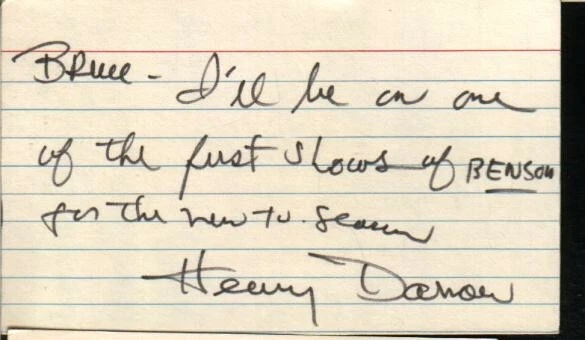 Bruce - I'll be on one
of the first shows of BENSON
for the new tv. season
Henry Darrow